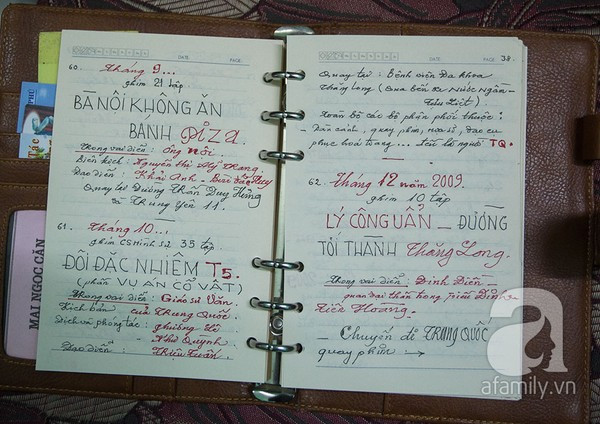 DATE: PAGE:
60. Tháng 9...
phim 21 tập
BÀ NỘI KHÔNG ĂN
BÁNH PIZA.
Trong vai diễn: Ông Nội.
Biên kịch: Nguyễn Thị Mỹ Trang.
Đạo diễn: Khải Anh - Bùi Tiến Huy
Quay tại Đường Trần Duy Hưng
và Trung Yên 11.
61. Tháng 10...
phim CS hình sự 35 tập
ĐỘI ĐẶC NHIỆM T5.
(phần VỤ ÁN CỔ VẬT)
Trong vai diễn: Giáo sư Văn.
Kịch bản của Trung Quốc.
Dịch và phóng tác:
Như Quỳnh.
Đạo diễn: Triệu Tuấn.
MAI NGỌC CĂN
DATE: PAGE: 38.
Quay tại: Bệnh viện Đa khoa
Thăng Long (
Toàn bộ các bộ phận phối thuộc:
- dàn cảnh, quay phim, họa sĩ, đạo cụ
phục hóa trang... đều là người TQ.
62. Tháng 12 năm 2009.
phim 10 tập
LÝ CÔNG UẨN - ĐƯỜNG
TỚI THÀNH Thăng Long.
Trong vai diễn: Đinh Điền -
quan đại thần trong triều Đinh
Tiên Hoàng.
- Chuyến đi TRUNG QUỐC
quay phim :→
a
afamily.vn